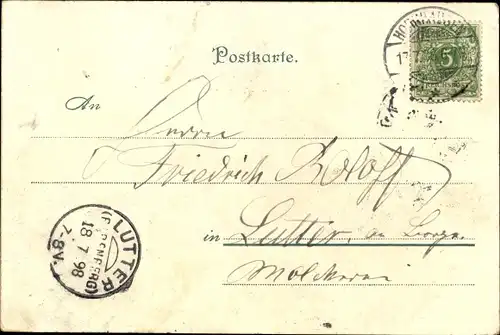 Postkarte.
5
An
Herrn
Friedrich Roloff
in Lutter, am Barge.
Molkerei
LUTTER
18.7.98
7-8V.